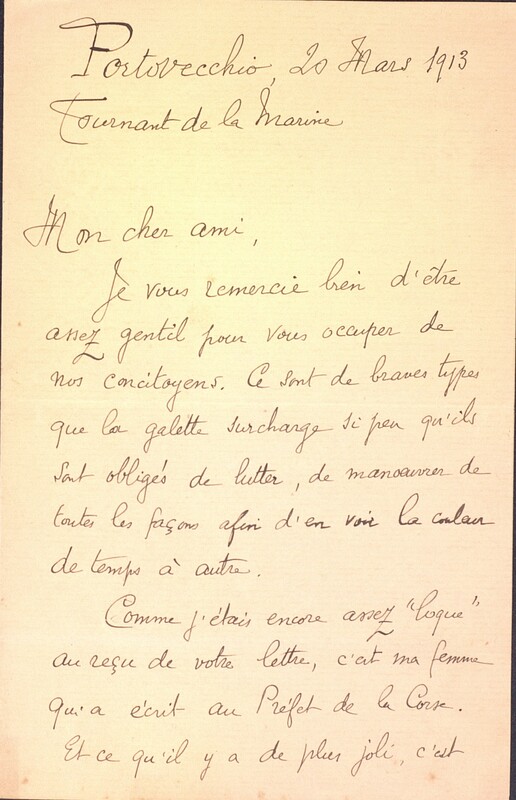 Portovecchio, 20 Mars 1913
Tournant de la Marine
Mon cher ami,
Je vous remercie bien d'être
assez gentil pour vous occuper de
nos concitoyens. Ce sont de braves types
que la galette surcharge si peu qu'ils
sont obligés de lutter, de manœuvrer de
toutes les façons afin d'en voir la couleur
de temps à autre.
Comme j'étais encore assez "loque"
au reçu de votre lettre, c'est ma femme
qui a écrit au Préfet de la Corse.
Et ce qu'il y a de plus joli, c'est